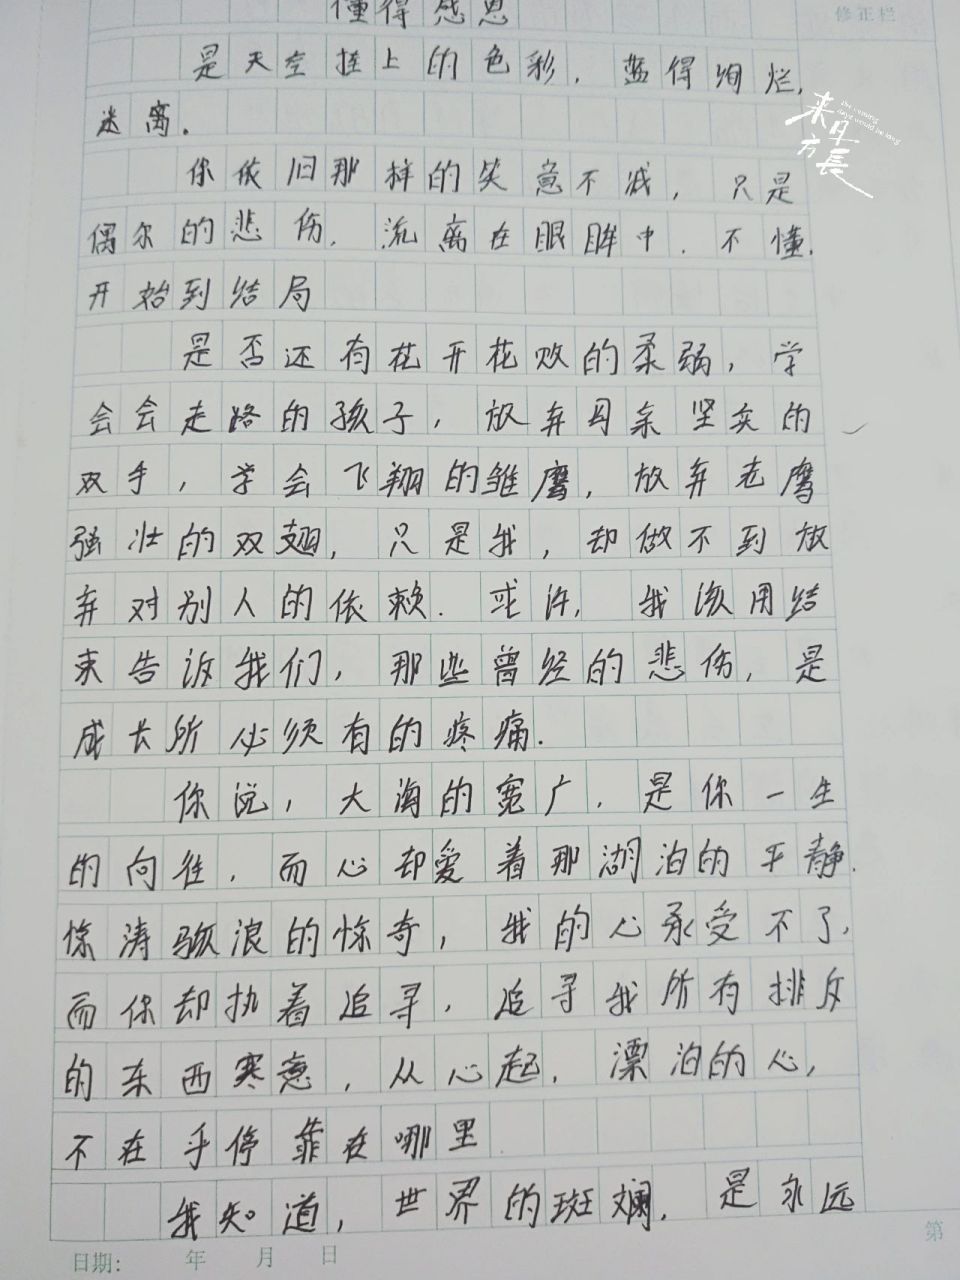 懂得感恩
修正栏
是天空挂上的色彩，蓝得绚烂，
迷离。
来日方長
the coming days would be long
你依旧那样的笑意不减，只是
偶尔的悲伤，流离在眼眸中．不懂．
开始到结局
是否还有花开花败的柔弱，学
会会走路的孩子，放弃母亲坚实的
双手，学会飞翔的雏鹰，放弃老鹰
强壮的双翅，只是我，却做不到放
弃对别人的依赖．或许，我该用结
束告诉我们，那些曾经的悲伤，是
成长所必须有的疼痛．
你说，大海的宽广，是你一生
的向往，而心却爱着那湖泊的平静．
惊涛骇浪的惊奇，我的心承受不了，
而你却执着追寻，追寻我所有排斥
的东西寒意，从心起，漂泊的心，
不在乎停靠在哪里
我知道，世界的斑斓，是永远
日期：　年　月　日
第